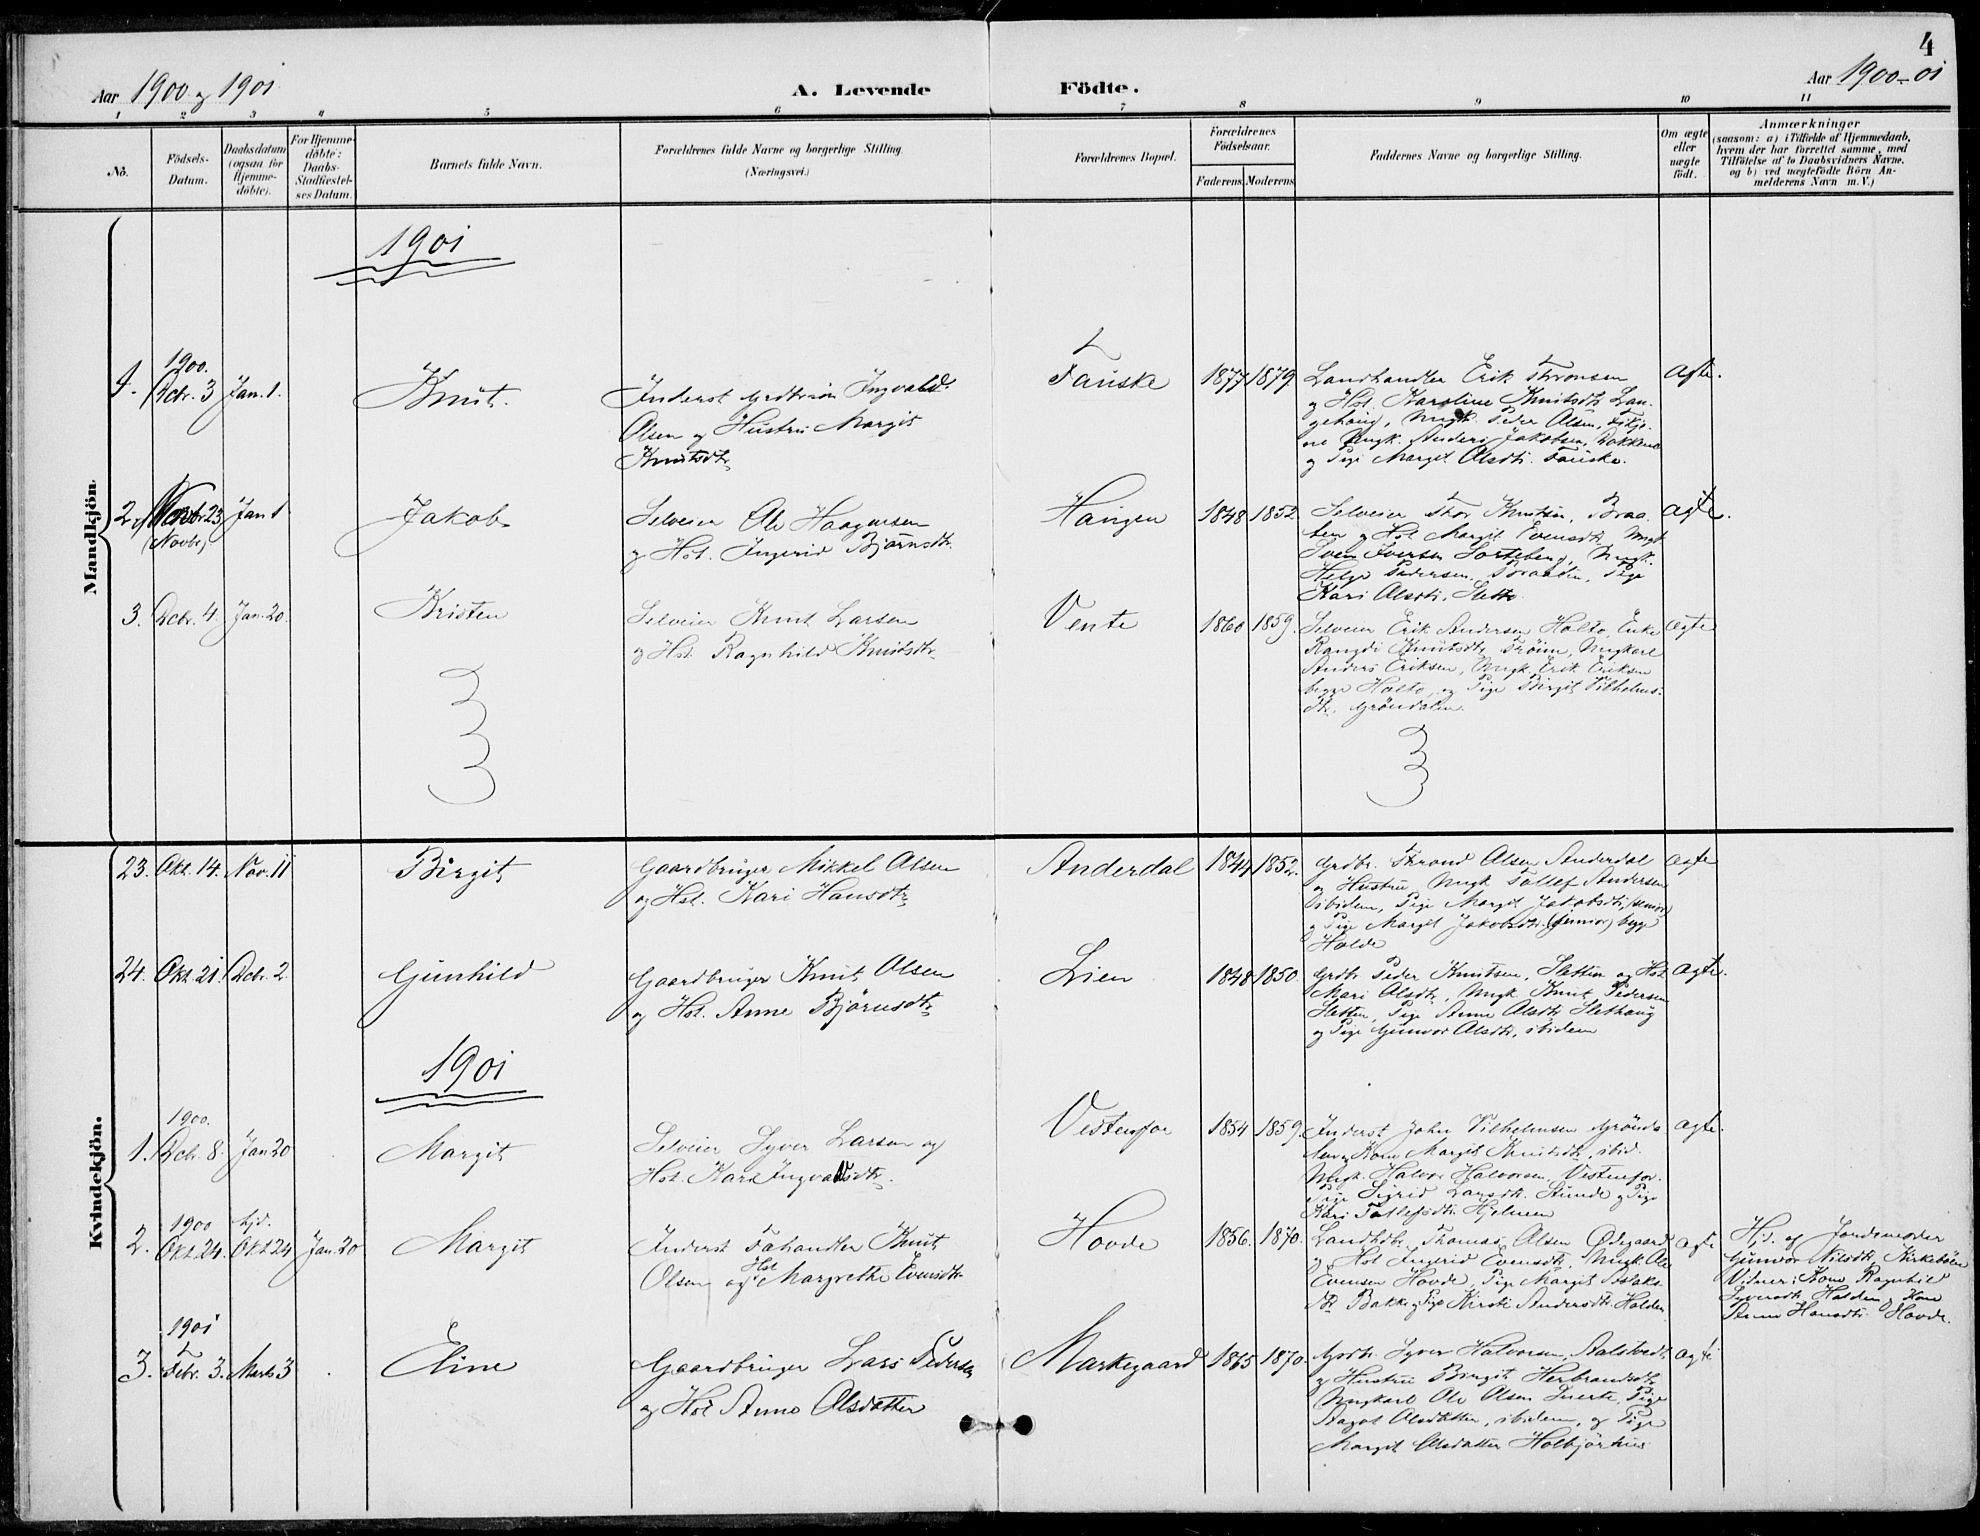 4
Aar 1900 og 1901
A. Levende Fødte.
Aar 1900-01
1 2 3 4 5 6 7 8 9 10 11
No.
Födsels-Datum.
Daabsdatum (ogsaa for Hjemmedöbte).
For Hjemmedöbte: Daabs-Stadfæstelses Datum.
Barnets fulde Navn.
Forældrenes fulde Navne og borgerlige Stilling. (Næringsvei.)
Forældrenes Bopæl.
Forældrenes Födselsaar.
Faderens Moderens
Faddernes Navne og borgerlige Stilling.
Om ægte eller uægte födt.
Anmærkninger
(saasom: a) i Tilfælde af Hjemmedaab,
hvem der har forrettet samme, med
Tilföielse af to Daabsvidners Navne.
og b) ved uægtefödte Börn An-
melderens Navn m. V.)
Mandkjön.
1901
1900.
1. Dcbr. 3 Jan. 1. Knut. Inderst Grdbrsön Ingvald
Olsen og Hustru Margit
Knutsdtr
Fauske 1877 1879 Landhandler Erik Thronsen
og Hst. Karoline Knutsdtr Lan-
gehaug, Ungk. Peder Olsen,
Ungk. Anders Jakobsen, Dokken
og Pige Margit Olsdtr. Fauske.
ægte.
2. Novbr 23 Jan 1 Jakob
(Novbr).
Selveier Ole Haagensen
og Hst. Ingerid Björnsdtr.
Haugen 1848 1852 Selveier Thor Knutsen, Braa-
ten og Hst Margit Evensdtr, Ungk
Sven Iversen Sorteberg, Ungk.
Helge Pedersen Braaten, Pige
Kari Olsdtr. Sletto
ægte.
3. Dcbr. 4 Jan. 20. Kristen
Selveier Knut Larsen
og Hst. Ragnhild Knutsdtr
Vente 1860 1859. Selveier Erik Andersen Holto, Enke
Rangdi Knutsdtr Tröim, Ungkarl
Anders Eriksen, Ungk. Erik Eriksen
begge Holto, og Pige Birgit Vilhelms-
dtr. Gröndalen.
ægte
Kvindekjön.
23. Okt. 14. Nov. 11 Birgit
Gaardbruger Mikkel Olsen
og Hst. Kari Hansdtr
Anderdal 1844 1852. Grdbr. Thrond Olsen Anderdal
og Hustru, Ungk Tollef Andersen
ibidem, Pige Margit Jakobsdtr. (senior)
og Pige Margit Jakobsdtr. (junior) begge
Holde
ægte
24. Okt. 21. Dcbr. 2. Gunhild
Gaardbruger Knut Olsen
og Hst. Anne Björnsdtr
Lien 1848 1850. Grdbr. Peder Knutsen, Sletten og Hst
Mari Olsdtr, Ungk Knut Pedersen
Sletten, Pige Anne Olsdtr Slethaug
og Pige Gunvor Olsdtr, ibidem
ægte.
1901
1900.
1. Dcbr. 8. Jan 20 Margit
Selveier Syver Larsen og
Hst. Kari Ingvaldsdtr.
Vestenfor 1854 1859. Inderst John Vilhelmsen Grönda-
len og Kone Margit Knutsdtr, ibid.
Ungk. Halvor Halvorsen, Vestenfor.
Pige Sigrid Larsdtr. Stunde og Pige
Kari Tollefsdtr. Hjelmen
ægte.
1900 hjd.
2. Okt. 24. Okt 24 Jan. 20 Margit
Inderst Fæhandler Knut
Olsen og Hst Margrethe Evensdtr
Hovde 1856. 1870. Landhdlr. Thomas Olsen Ödegaard
og Hst Ingerid Evensdtr, Ungk. Ole
Evensen Hovde, Pige Margit Aslaks-
dtr Bakke og Pige Kirsti Andersdtr. Holden
ægte
Hjd. af Jordemoder
Gunvor Nilsdtr, Kirkebøen
Vidner: Kone Ragnhild
Syversdtr Holden og Kone
Anne Hansdtr. Hovde.
1901
3. Febr. 3. Marts 3 Eline
Gaardbruger Lars Pedersen
og Hst Anne Olsdatter
Markegaard 1865 1870. Grdbr. Syver Halvorsen, Aalstvedt
og Hustru Birgit Herbrandsdtr
Ungkarl Ole Olsen Snerte, Pige
Aagot Olsdatter, ibidem, og Pige
Margit Olsdatter Holbjörhus
ægte